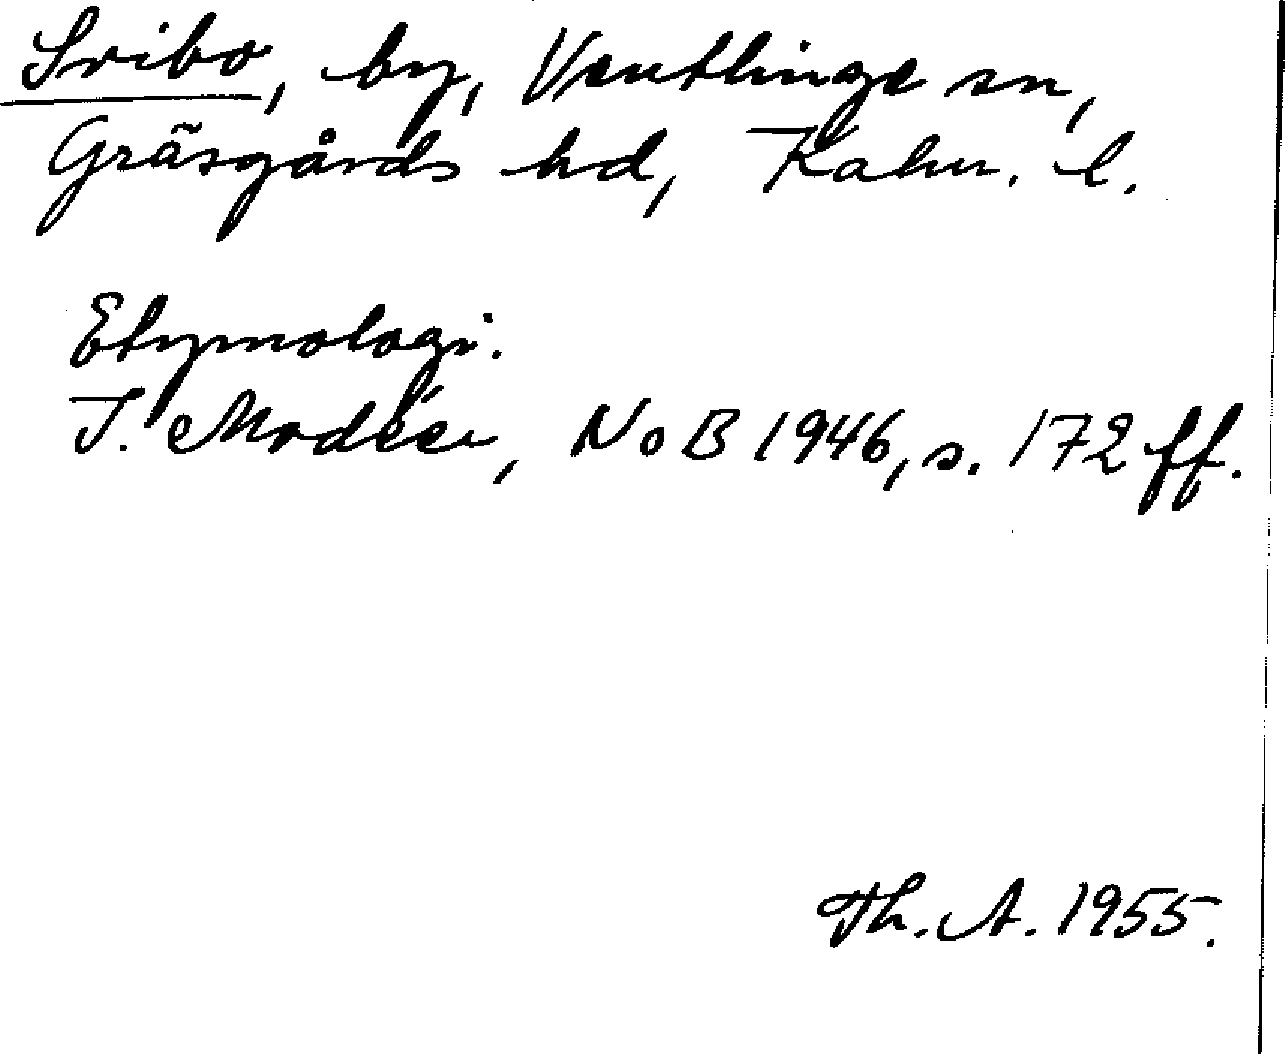 Svibo, by, Ventlinge sn,
Gräsgårds hd, Kalm. l.
Etymologi.
I. Modéer, NoB 1946, s. 172 ff.
Th. A. 1955.